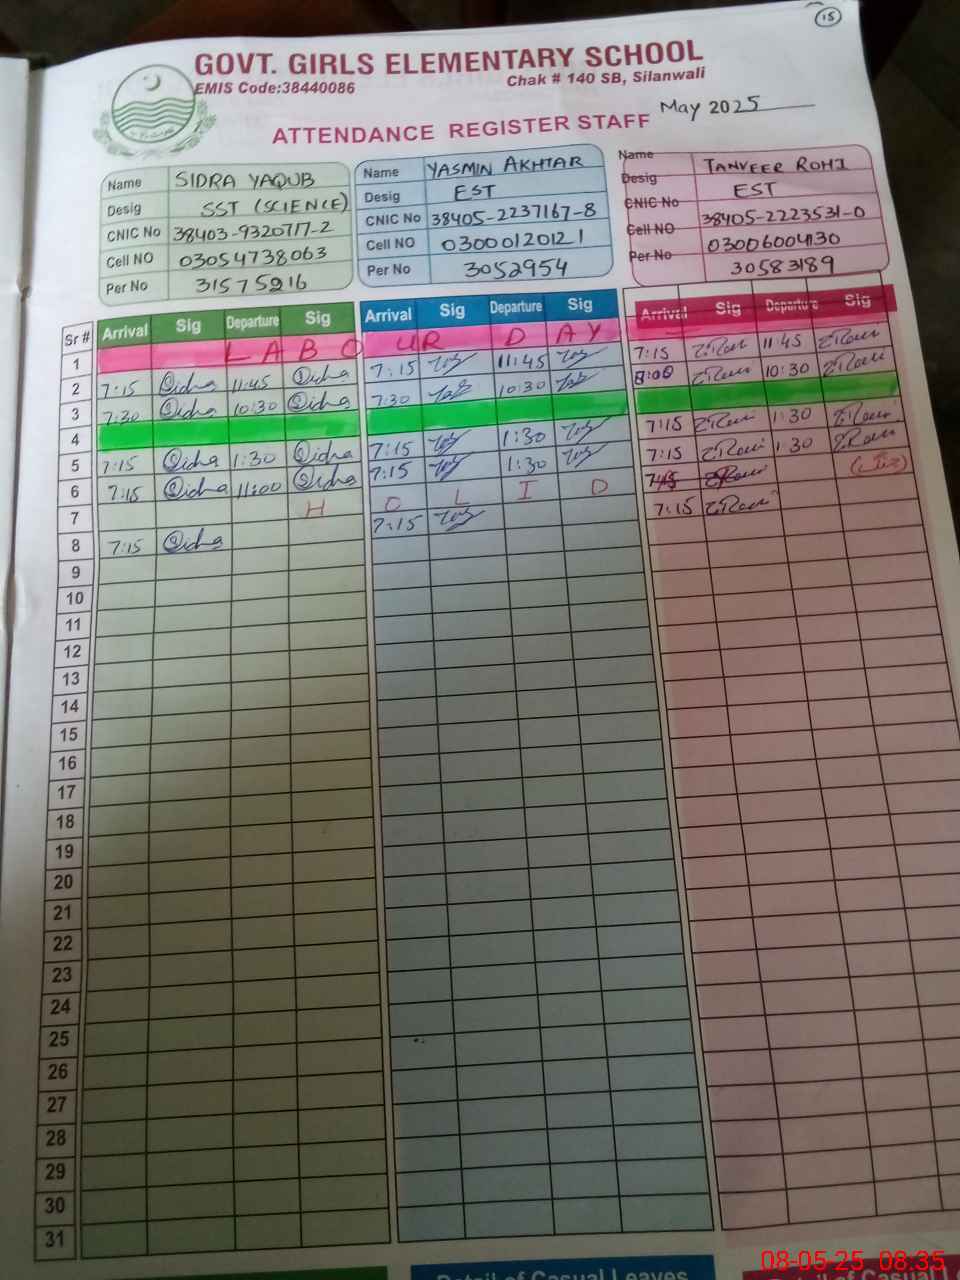 15
GOVT. GIRLS ELEMENTARY SCHOOL
EMIS Code:38440086 Chak # 140 SB, Silanwali
ATTENDANCE REGISTER STAFF May 2025
Name SIDRA YAQUB Name YASMIN AKHTAR Name TANVEER ROHI
Desig SST (SCIENCE) Desig EST Desig EST
CNIC No 38403-9320717-2 CNIC No 38405-2237167-8 CNIC No 38405-2223531-0
Cell NO 03054738063 Cell NO 03000120121 Cell NO 03006004130
Per No 31575216 Per No 3052954 Per No 30583189
Sr # Arrival Sig Departure Sig Arrival Sig Departure Sig Arrival Sig Departure Sig
1 LABOUR DAY
2 7:15 Sidra 11:45 Sidra 7:15 11:45 7:15 11:45
3 7:30 Sidra 10:30 Sidra 7:30 10:30 8:00 10:30
4
5 7:15 Sidra 1:30 Sidra 7:15 1:30 7:15 1:30
6 7:15 Sidra 11:00 Sidra 7:15 1:30 7:15 1:30
7 H O L I D
8 7:15 Sidra 7:15 7:15
9
10
11
12
13
14
15
16
17
18
19
20
21
22
23
24
25
26
27
28
29
30
31
Detail of Casual Leaves
08-05-25 08:35